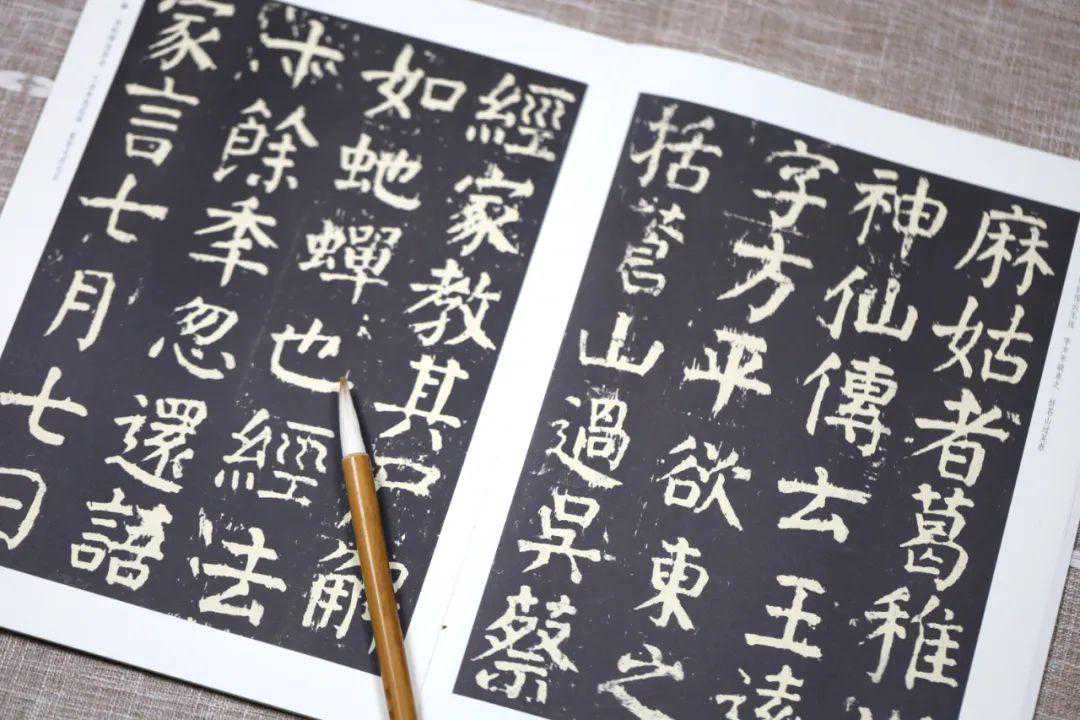 麻姑者葛稚
神仙傳云王遠
字方平欲東之
括蒼山過吳蔡
經家教其解
如虵蟬也經去
餘年忽還語
家言七月七日